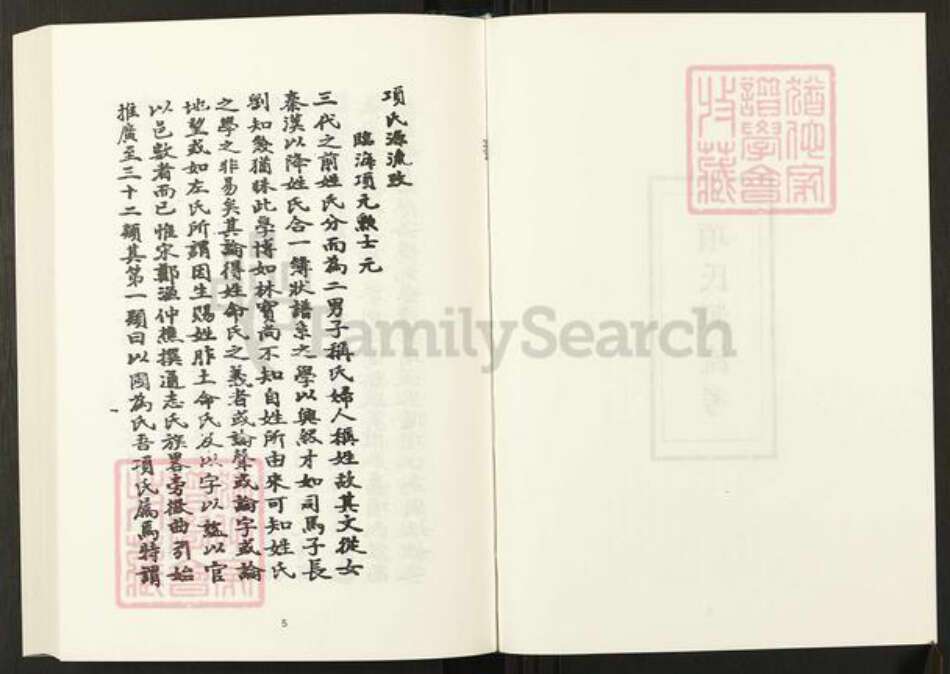 項氏源流攷
臨海項元勲士元
三代之前姓氏分而為二男子稱氏婦人稱姓故其文從女
秦漢以降姓氏合一簿狀譜系之學以興然才如司馬子長
劉知幾猶昧此學博如林寶尚不知自姓所由來可知姓氏
之學之非易矣其論得姓命氏之義者或論聲或論字或論
地望或如左氏所謂因生賜姓胙土命氏及以字以諡以官
以邑數者而已惟宋鄭漁仲樵撰通志氏族畧旁徵曲引始
推廣至三十二類其第一類曰以國為氏吾項氏屬焉特謂
5
猶他家
譜學會
收藏
項氏源流考
FamilySearch